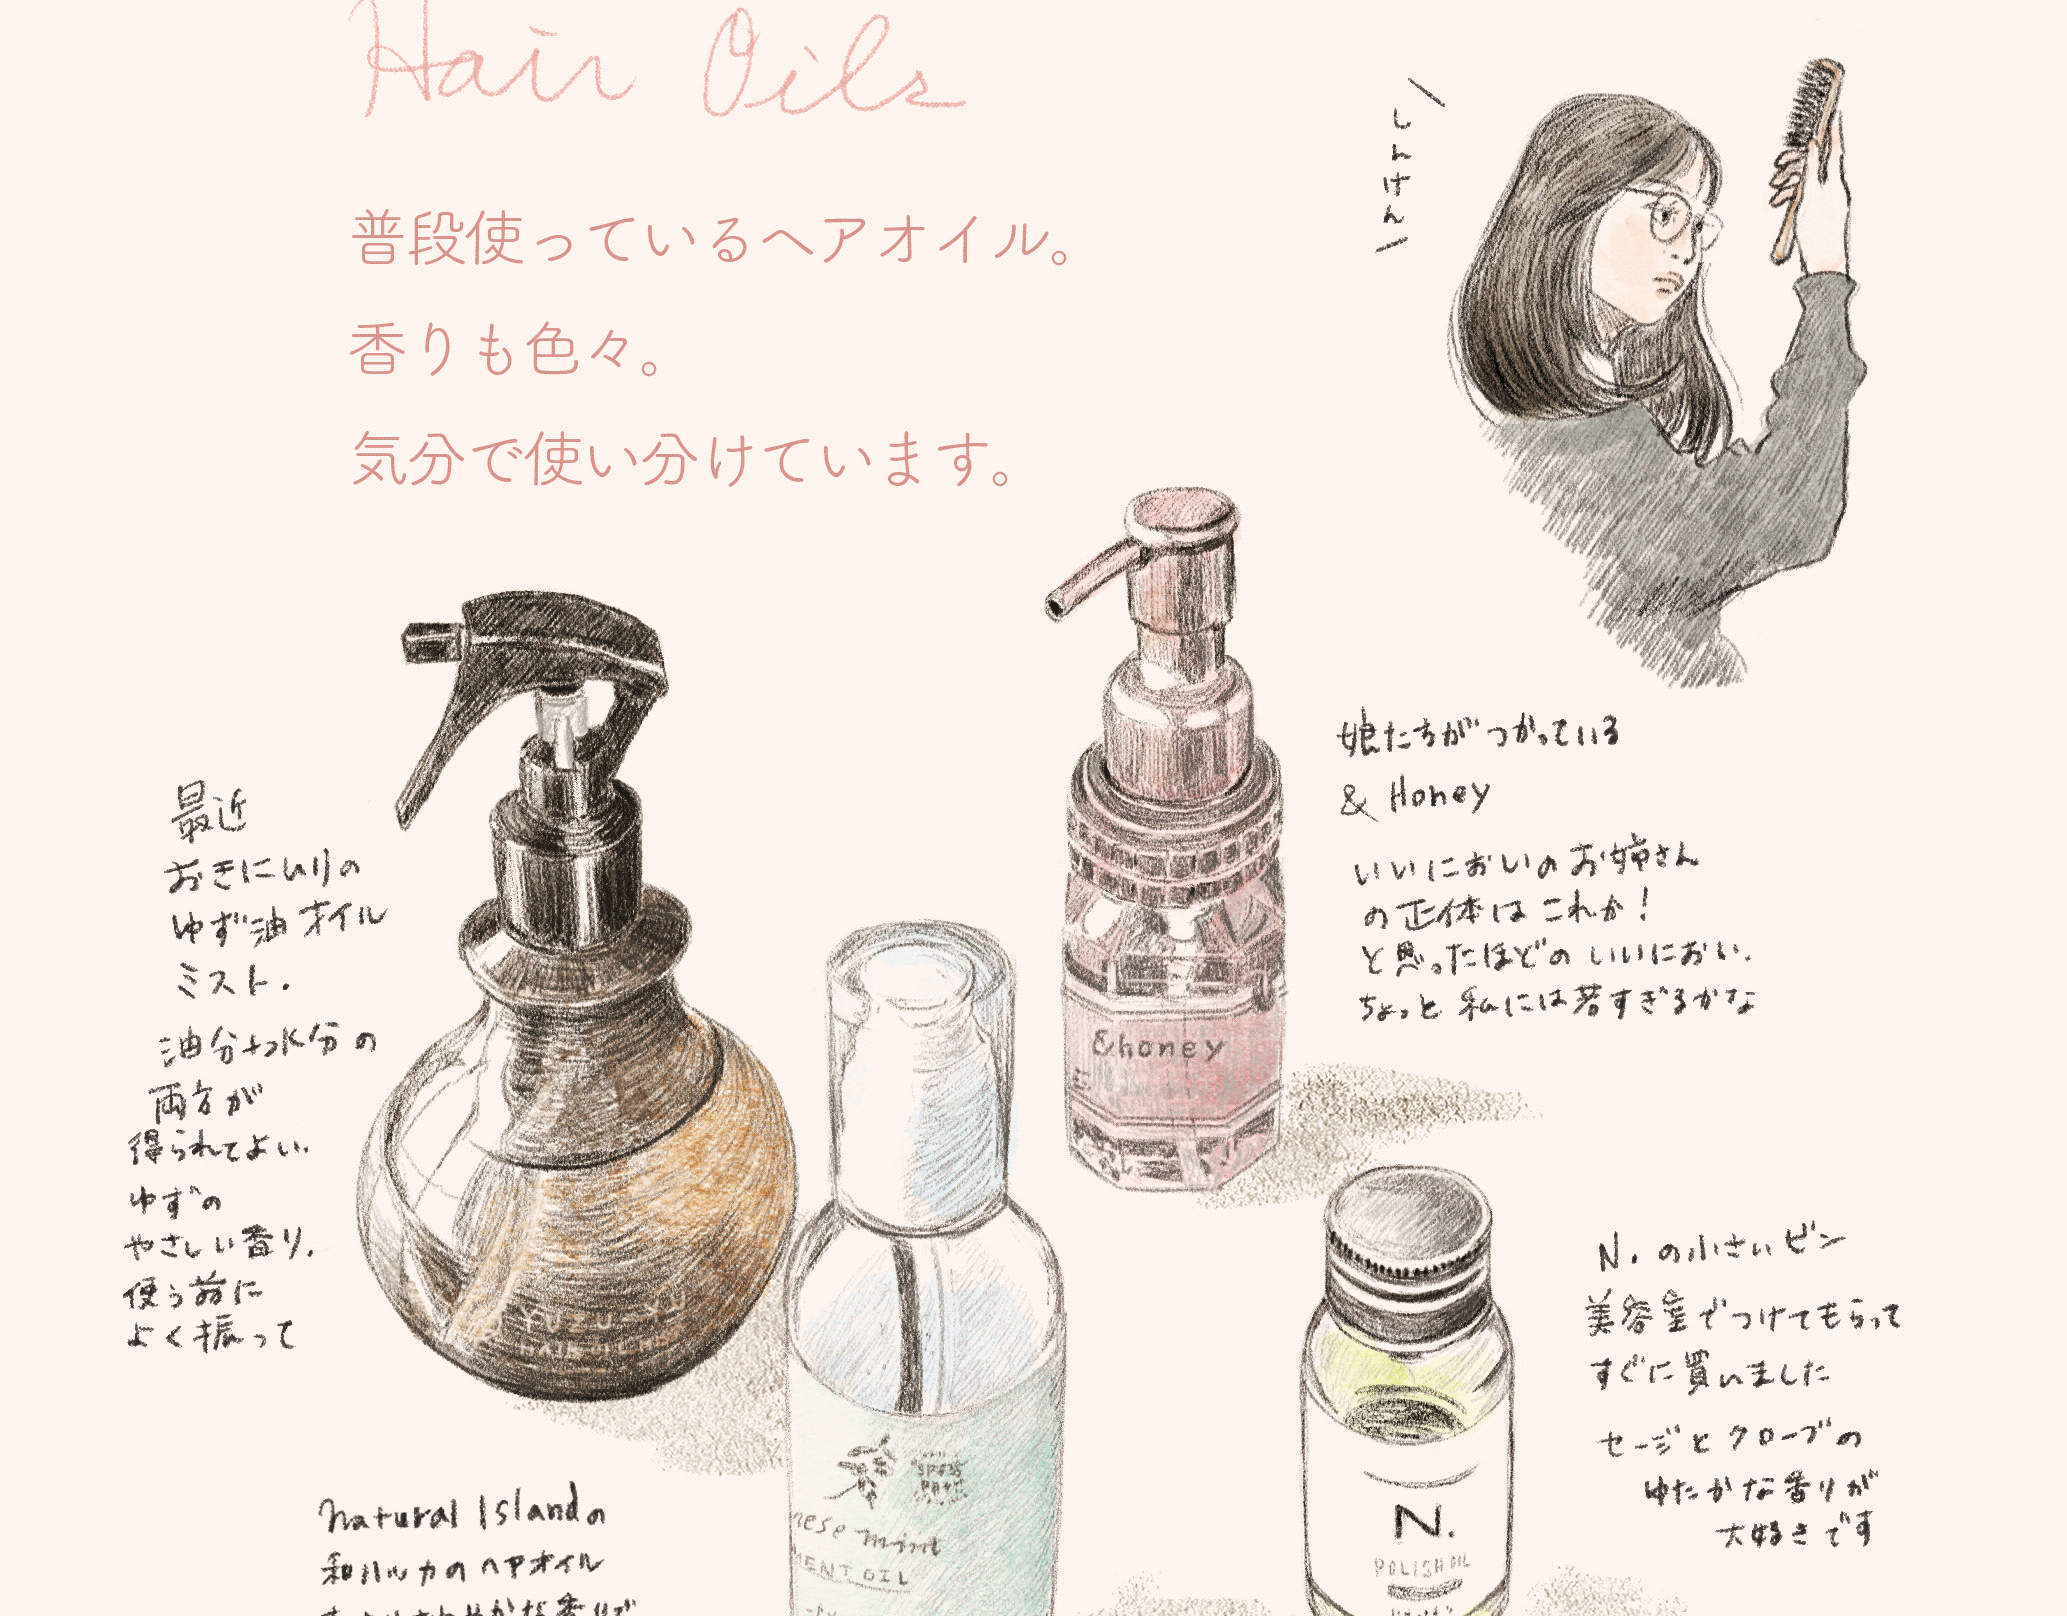 Hair Oils
しんけん
普段使っているヘアオイル。
香りも色々。
気分で使い分けています。
娘たちがつかっている
& Honey
いいにおいのお姉さん
の正体はこれか!
と思ったほどのいいにおい.
ちょっと私には若すぎるかな
&honey
最近
おきにいりの
ゆず油オイル
ミスト.
油分+水分の
両方が
得られてよい.
ゆずの
やさしい香り.
使う前に
よく振って
YUZU-YU
N. の小さいビン
美容室でつけてもらって
すぐに買いました
セージとクローブの
ゆたかな香りが
大好きです
N.
POLISH OIL
mint
OIL
natural Islandの
和ハルカのヘアオイル